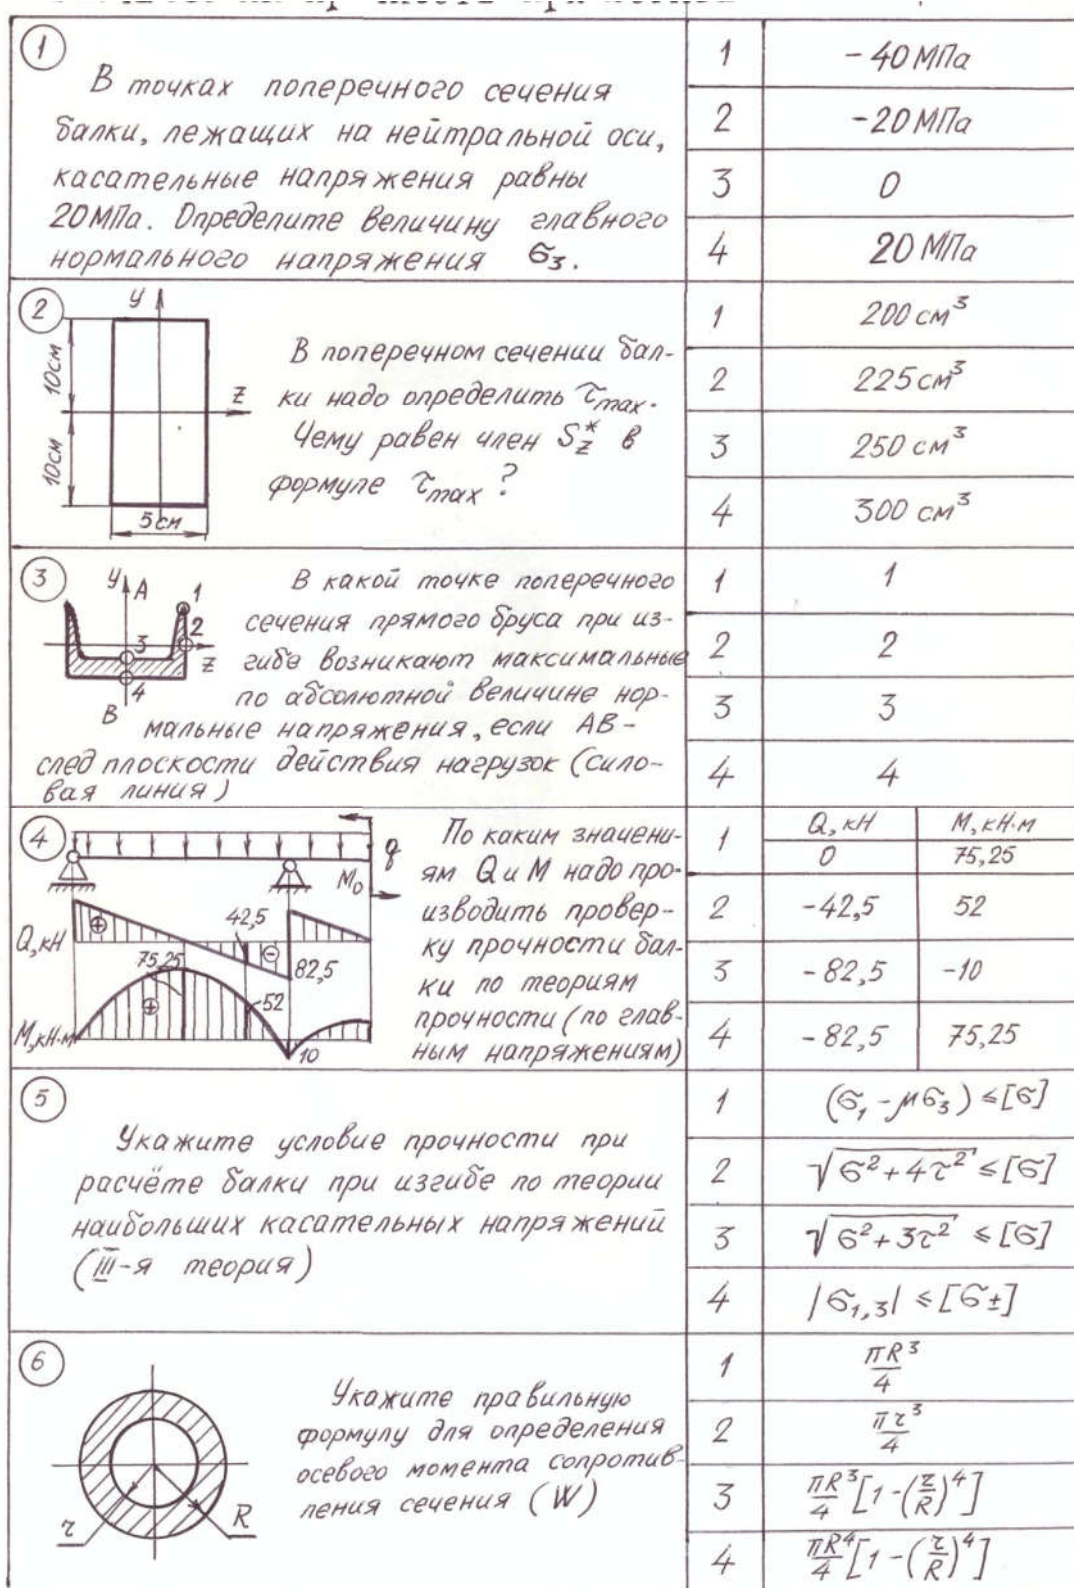 1
В точках поперечного сечения
балки, лежащих на нейтральной оси,
касательные напряжения равны
20МПа. Определите величину главного
нормального напряжения σ₃.
1 -40 МПа
2 -20 МПа
3 0
4 20 МПа
2
y
10см
z
10см
5 см
В поперечном сечении бал-
ки надо определить τmax.
Чему равен член S*z в
формуле τmax?
1 200 см³
2 225 см³
3 250 см³
4 300 см³
3
y A 1
2
3 z
4
B
В какой точке поперечного
сечения прямого бруса при из-
гибе возникают максимальные
по абсолютной величине нор-
мальные напряжения, если АВ-
след плоскости действия нагрузок (сило-
вая линия)
1 1
2 2
3 3
4 4
4
q
M₀
Q, кН
42,5
82,5
75,25
52
М, кН·м
10
По каким значени-
ям Q и M надо про-
изводить провер-
ку прочности бал-
ки по теориям
прочности (по глав-
ным напряжениям)
Q, кН М, кН·м
1 0 75,25
2 -42,5 52
3 -82,5 -10
4 -82,5 75,25
5
Укажите условие прочности при
расчёте балки при изгибе по теории
наибольших касательных напряжений
(III-я теория)
1 (σ₁ - μσ₃) ≤ [σ]
2 √σ² + 4τ² ≤ [σ]
3 √σ² + 3τ² ≤ [σ]
4 |σ₁,₃| ≤ [σ±]
6
r
R
Укажите правильную
формулу для определения
осевого момента сопротив-
ления сечения (W)
1 πR³/4
2 πr³/4
3 πR³/4 [1-(r/R)⁴]
4 πR⁴/4 [1-(r/R)⁴]